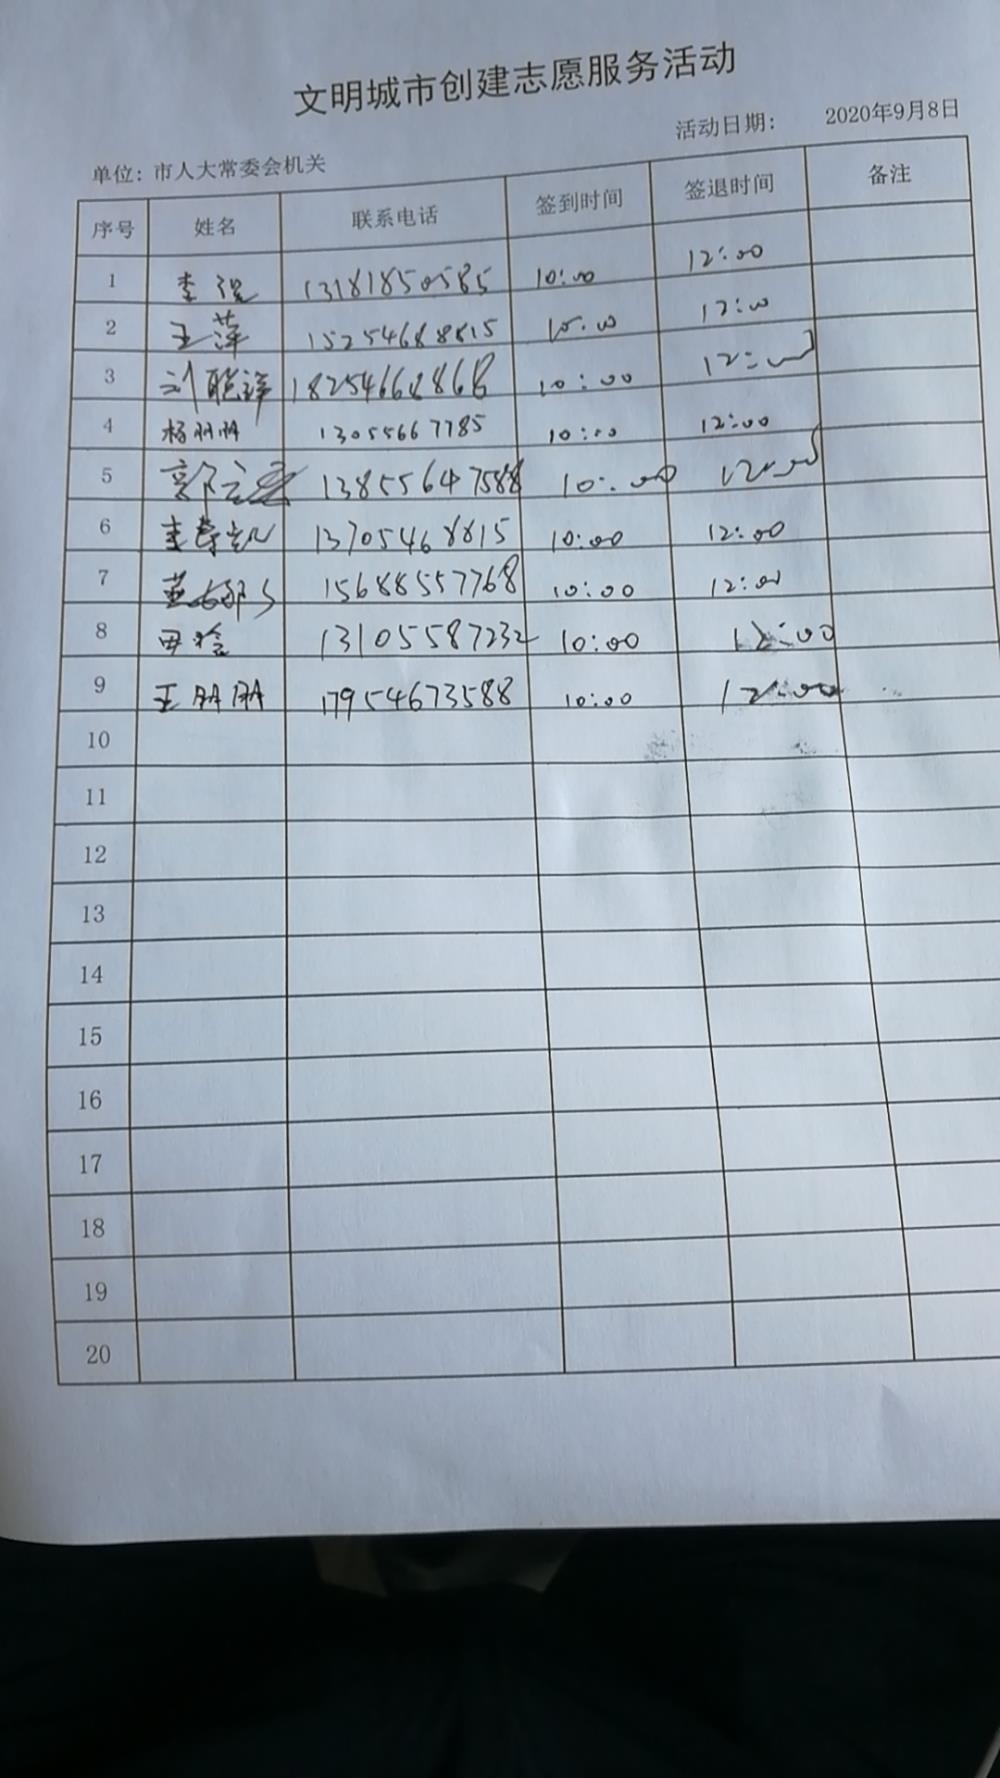 文明城市创建志愿服务活动
活动日期: 2020年9月8日
单位: 市人大常委会机关
序号 姓名 联系电话 签到时间 签退时间 备注
1 李强 13181850585 10:00 12:00
2 王萍 15254688815 10:00 12:00
3 刘聪祥 18254668868 10:00 12:00
4 杨丽娜 13055667785 10:00 12:00
5 13855647588 10:00 12:00
6 13705468815 10:00 12:00
7 15688557768 10:00 12:00
8 田玲 13105587232 10:00 12:00
9 王朋朋 17954673588 10:00 12:00
10
11
12
13
14
15
16
17
18
19
20